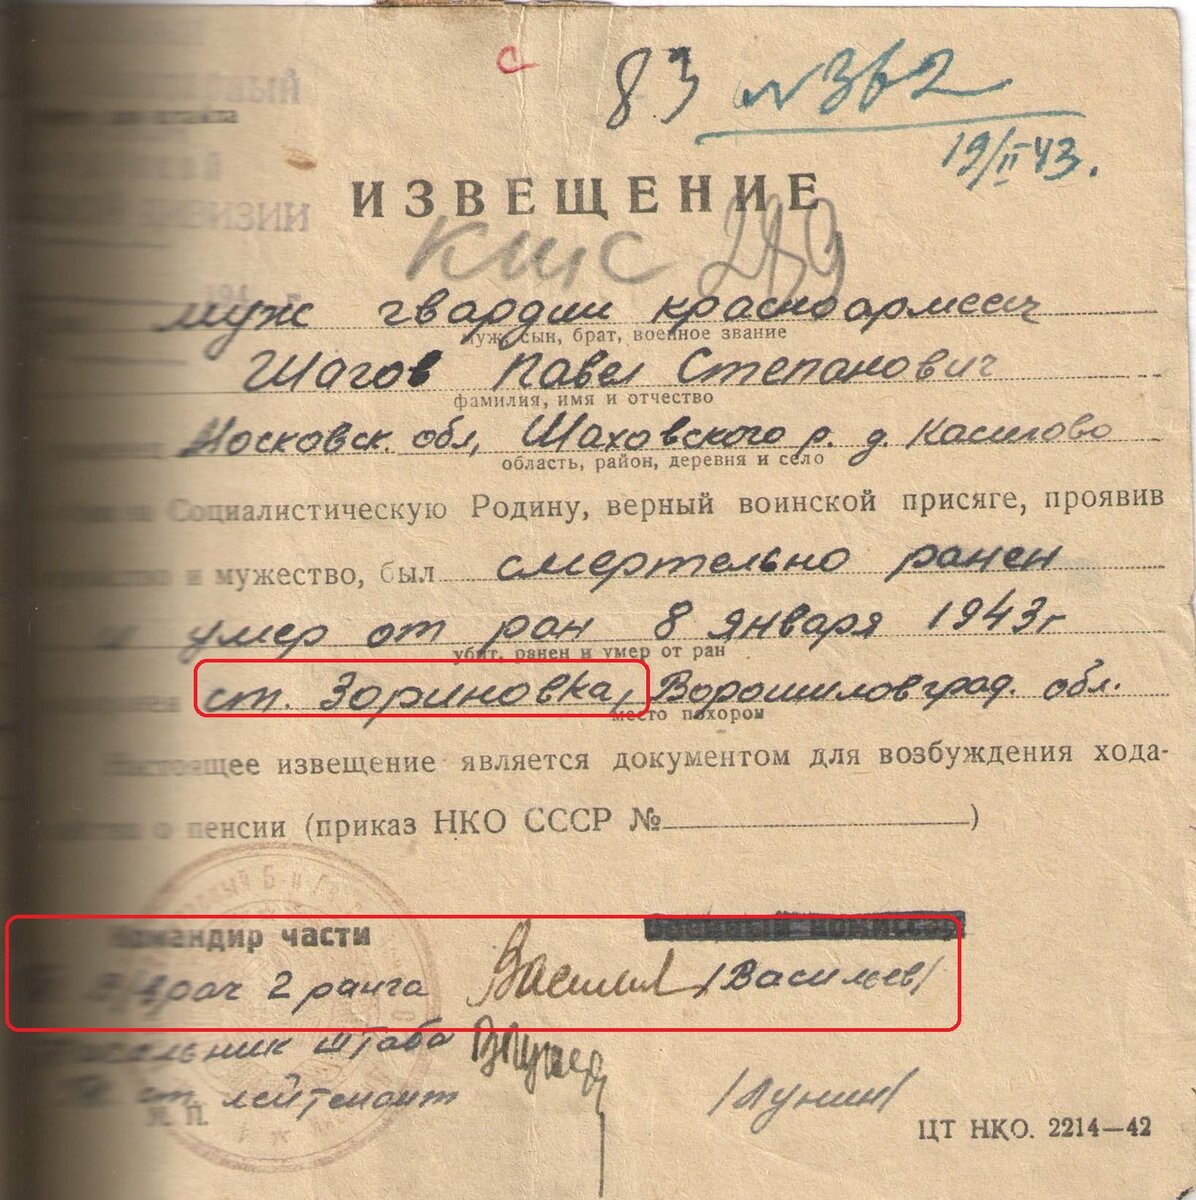 с
83 №362
19/II 43.
ИЗВЕЩЕНИЕ
КШС 289
муж гвардии красноармеец
муж, сын, брат, военное звание
Шагов Павел Степанович
фамилия, имя и отчество
Московск. обл, Шаховского р. д. Касилово
область, район, деревня и село
Социалистическую Родину, верный воинской присяге, проявив
и мужество, был смертельно ранен
и умер от ран 8 января 1943г
убит, ранен и умер от ран
ст. Зориновка, Ворошиловград. обл.
место похорон
Настоящее извещение является документом для возбуждения хода-
о пенсии (приказ НКО СССР № )
Командир части
врач 2 ранга Васильев /Васильев/
Начальник штаба
ст. лейтенант /Лунин/
М. П.
ЦТ НКО. 2214—42